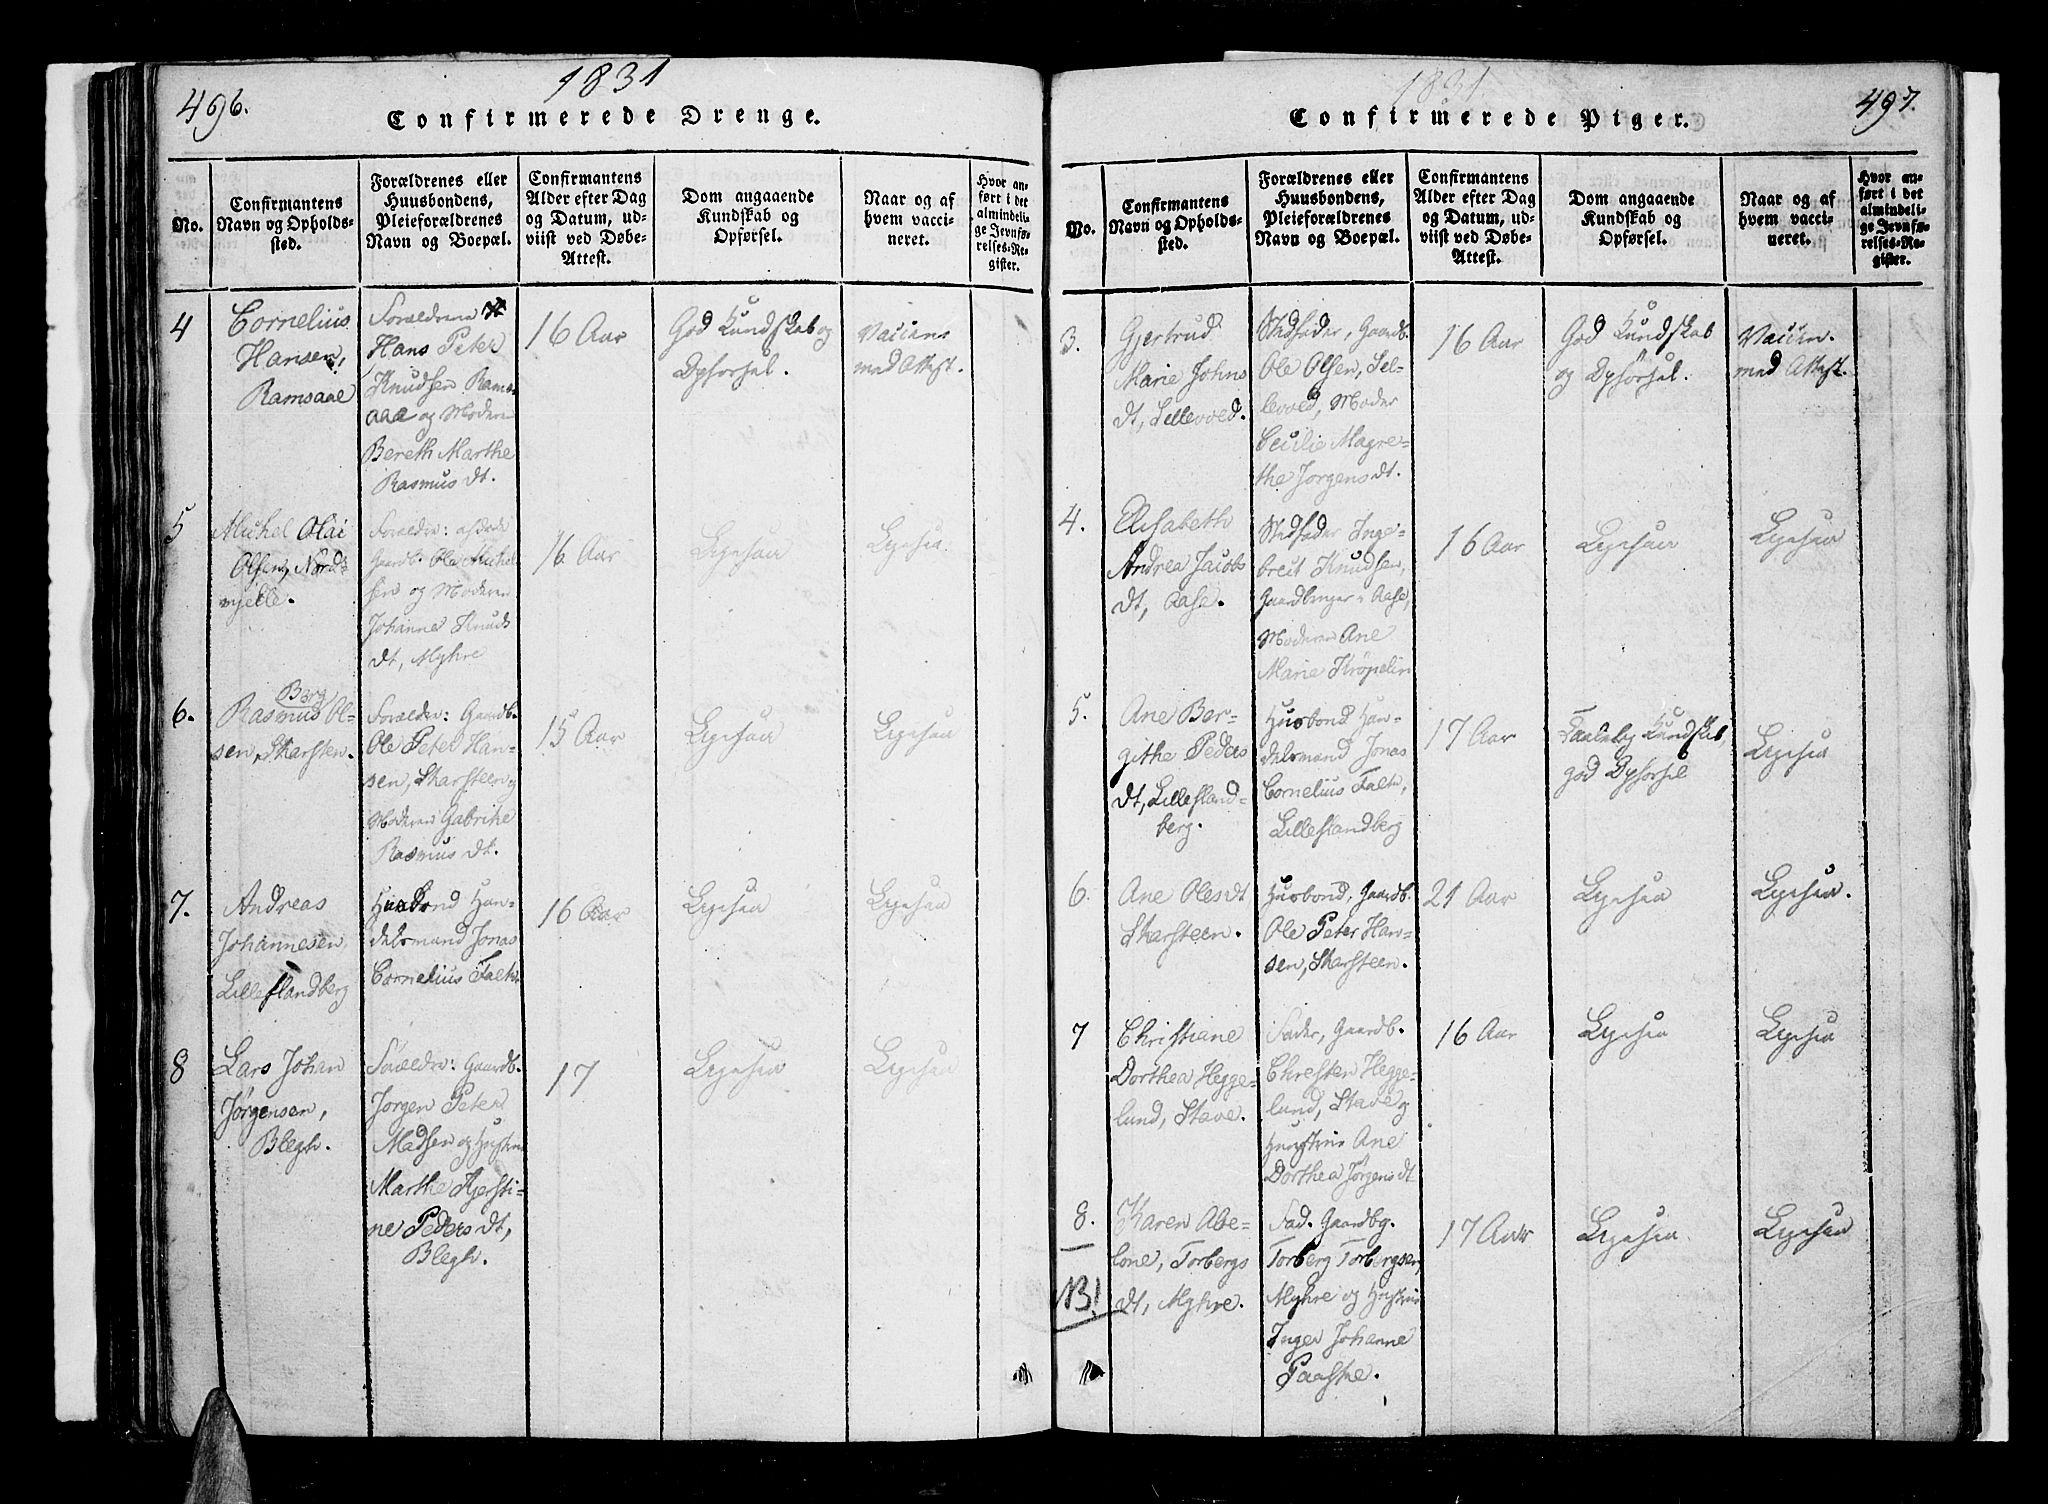 496.
1831
Confirmerede Drenge.
No.
Confirmantens
Navn og Opholds-
sted.
Forældrenes eller
Huusbondens,
Pleieforældrenes
Navn og Boepæl.
Confirmantens
Alder efter Dag
og Datum, ud-
viist ved Døbe-
Attest.
Dom angaaende
Kundskab og
Opførsel.
Naar og af
hvem vacci-
neret.
Hvor an-
ført i det
almindeli-
ge Jevnfø-
relses-Re-
gister.
4
Cornelius
Hansen,
Ramsaae
Forældrene
Hans Peter
Knudsen Rams-
aae og Moderen
Bereth Marthe
Rasmus dt.
16 Aar
God Kundskab og
Opførsel.
Vaccine
med Attest.
5
Michel Olai
Olsen, Nord-
mjelle.
Forældre: afdøde
Gaardb. Ole Michel
sen og Moderen
Johanne Knuds
dt, Myhre
16 Aar
Ligesaa
Ligesaa
6.
Berg
Rasmus Ol-
sen, Skarsten.
Forældre: Gaardb.
Ole Peter Han-
sen, Skarsteen og
Moderen Gabrike
Rasmus dt.
15 Aar
Ligesaa
Ligesaa
7.
Andreas
Johannesen
Lilleslandberg
Husbond Han-
delsmand Jonas
Cornelius Falch.
16 Aar
Ligesaa
Ligesaa
8
Lars Johan
Jørgensen,
Blegh.
Forældre: Gaardb.
Jørgen Peter
Madsen og Hustrue
Marthe Kjersti-
ne Peders dt,
Blegh.
17
Ligesaa
Ligesaa
1831.
497.
Confirmerede Piger.
No.
Confirmantens
Navn og Opholds-
sted.
Forældrenes eller
Huusbondens,
Pleieforældrenes
Navn og Boepæl.
Confirmantens
Alder efter Dag
og Datum, ud-
viist ved Døbe-
Attest.
Dom angaaende
Kundskab og
Opførsel.
Naar og af
hvem vacci-
neret.
Hvor an-
ført i det
almindeli-
ge Jevnfø-
relses-Re-
gister.
3.
Gjertrud
Marie Johns
dt, Lillevold.
Stedfader, Gaardb.
Ole Olsen, Lil-
levold, Moder
Cecilie Magre-
the Jørgens dt.
16 Aar
God Kundskab
og Opførsel.
Vaccin.
med Attest.
4.
Elisabeth
Andrea Jacobs
dt, Aase.
Stedfader Inge-
breit Knudsen,
Gaardbruger i Aase,
Moderen Ane
Marie Krøpelin
16 Aar
Ligesaa
Ligesaa
5.
Ane Ber-
githe Peders
dt, Lillesland-
berg.
Husbond Han-
delsmand Jonas
Cornelius Falch,
Lilleslandberg
17 Aar
Taalelig Kundskab,
god Opførsel
Ligesaa
6.
Ane Olesdt
Skarsteen.
Husbond, Gaardb.
Ole Peter Han-
sen, Skarsteen.
21 Aar
Ligesaa
Ligesaa.
7
Christiane
Dorthea Hegge-
lund, Stave.
Fader, Gaardb.
Christen Hegge-
lund, Stave og
Hustrue Ane
Dorthea Jørgens dt
16 Aar
Ligesaa
Ligesaa
8.
NB!
Karen Abe-
lone, Torbergs
dt, Myhre.
Fad. Gaardbg.
Torberg Torbergsen,
Myhre og Hustrue
Inger Johanne
Paaske.
17 Aar
Ligesaa.
Ligesaa